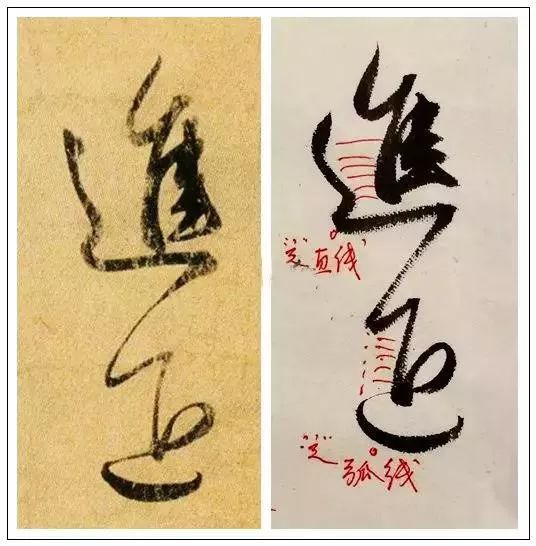 進退
進退
辶直线
辶弧线